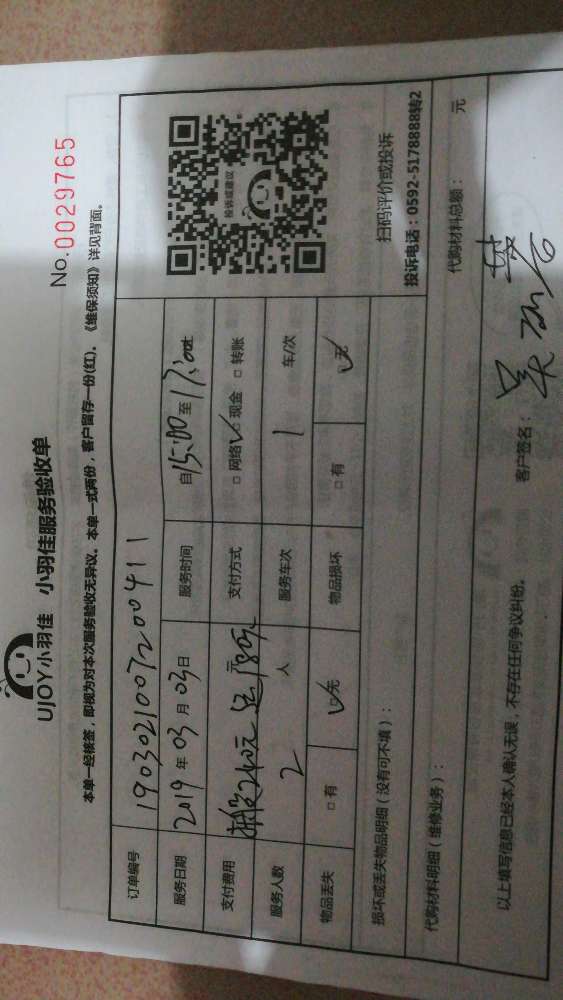 UJOY小羽佳 小羽佳服务验收单
No.0029765
本单一经核签，即视为对本次服务验收无异议。本单一式两份，客户留存一份(红)。《维保须知》详见背面。
订单编号 1903021007200411
服务日期 2019 年 03 月 03 日 服务时间 自 15:00 至 17:00
支付费用 240元 元 支付方式 □ 网络 ✓ 现金 □ 转账
服务人数 2 人 服务车次 1 车/次
物品丢失 □ 有 □ 无 ✓ 物品损坏 □ 有 □ 无 ✓
投诉或建议
扫码评价或投诉
投诉电话：0592-5178888转2
损坏或丢失物品明细（没有可不填）：
代购材料明细（维修业务）： 代购材料总额： 元
以上填写信息已经本人确认无误，不存在任何争议纠纷。 客户签名：